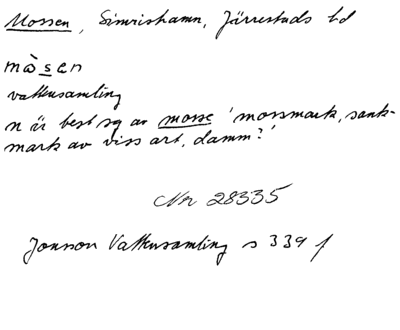 Mossen, Simrishamn, Järrestads hd
mòsen
vattensamling
n är best sg av mosse 'mossmark, sank-
mark av viss art, damm?'
Nr 28335
Jonsson Vattensamling s 339 f